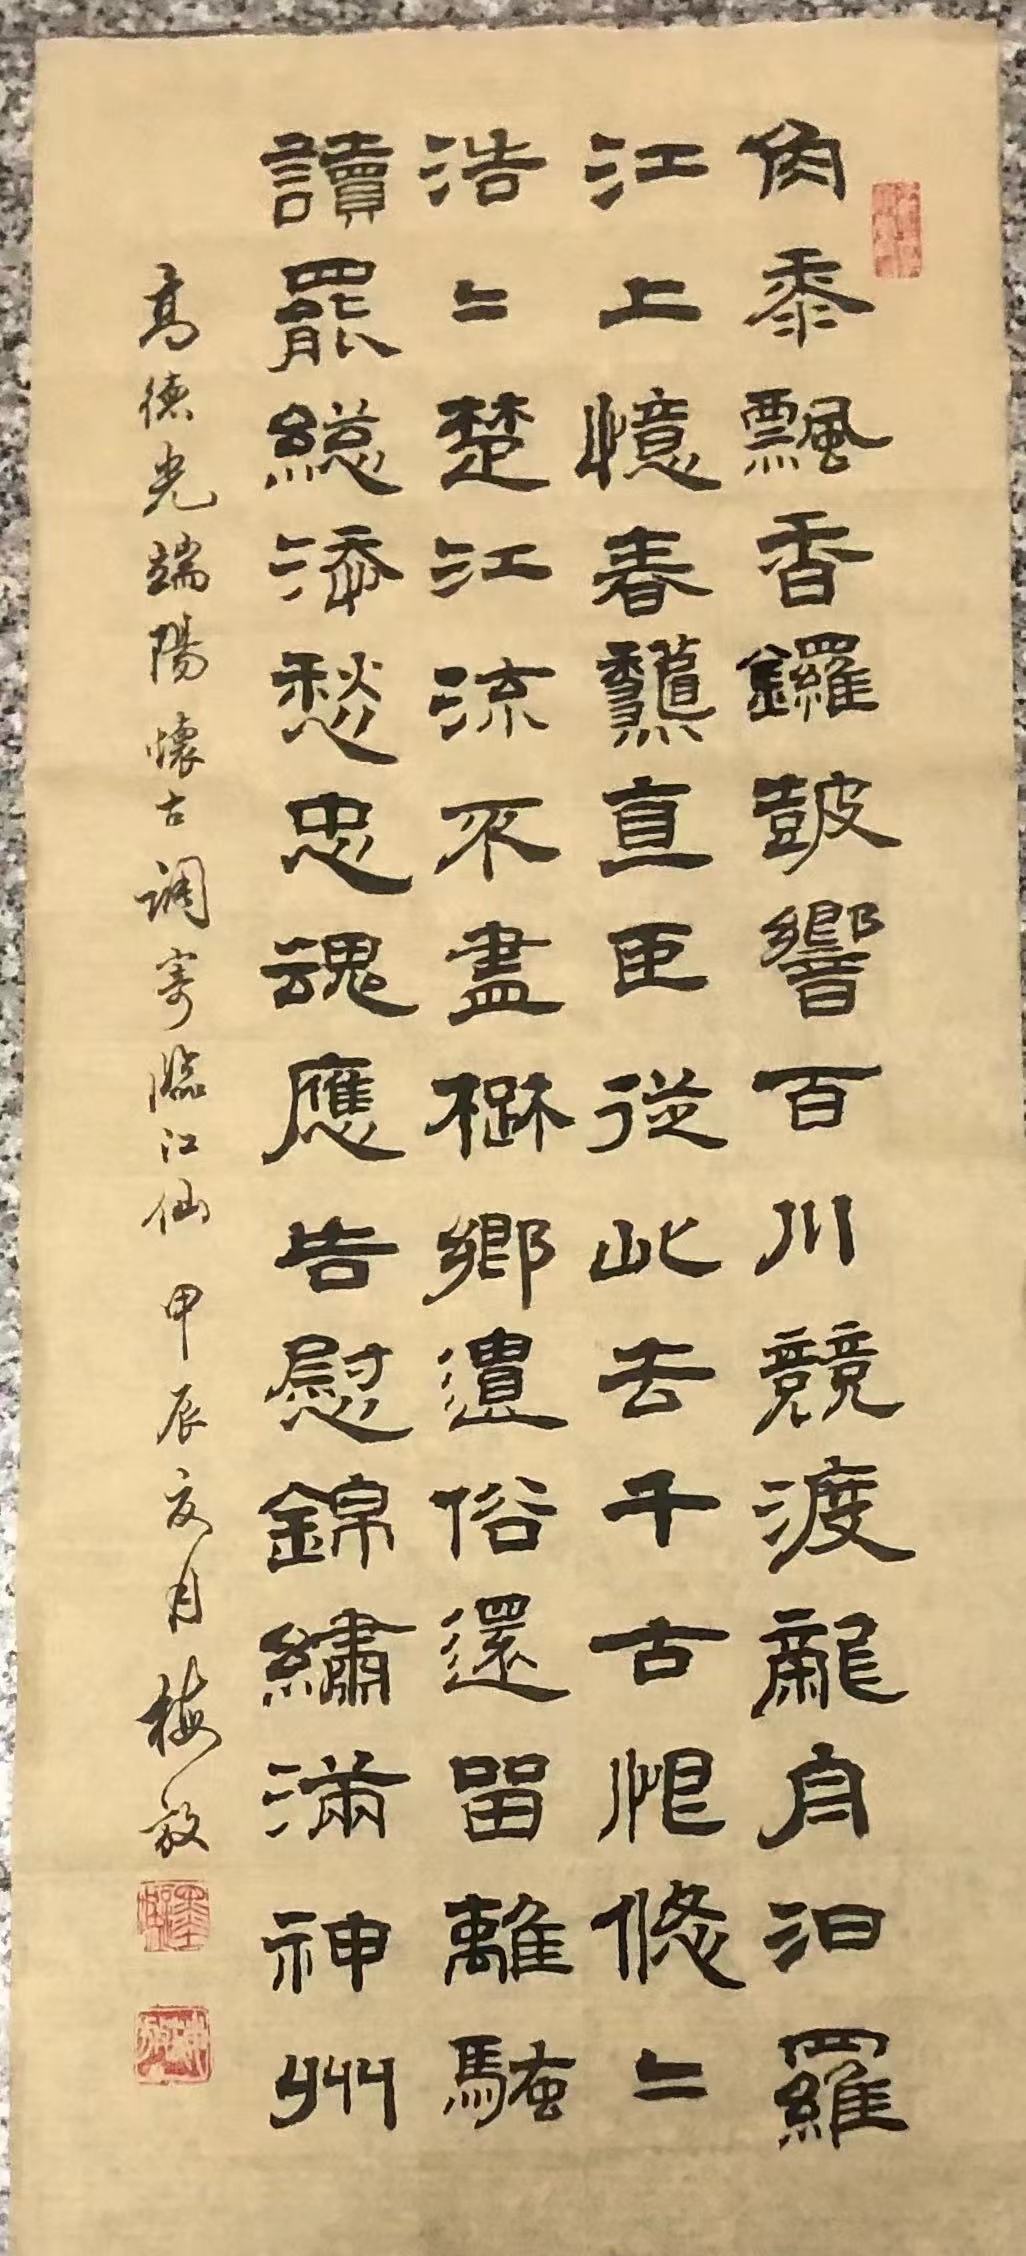 角黍飄香鑼鼓響百川競渡龍舟汨羅
江上憶春龝直臣從此去千古恨悠〻
浩〻楚江流不盡鄉遺俗還留離騷
讀罷總添愁忠魂應告慰錦繡滿神州
高德光端陽懷古調寄臨江仙 甲辰夏月 梅